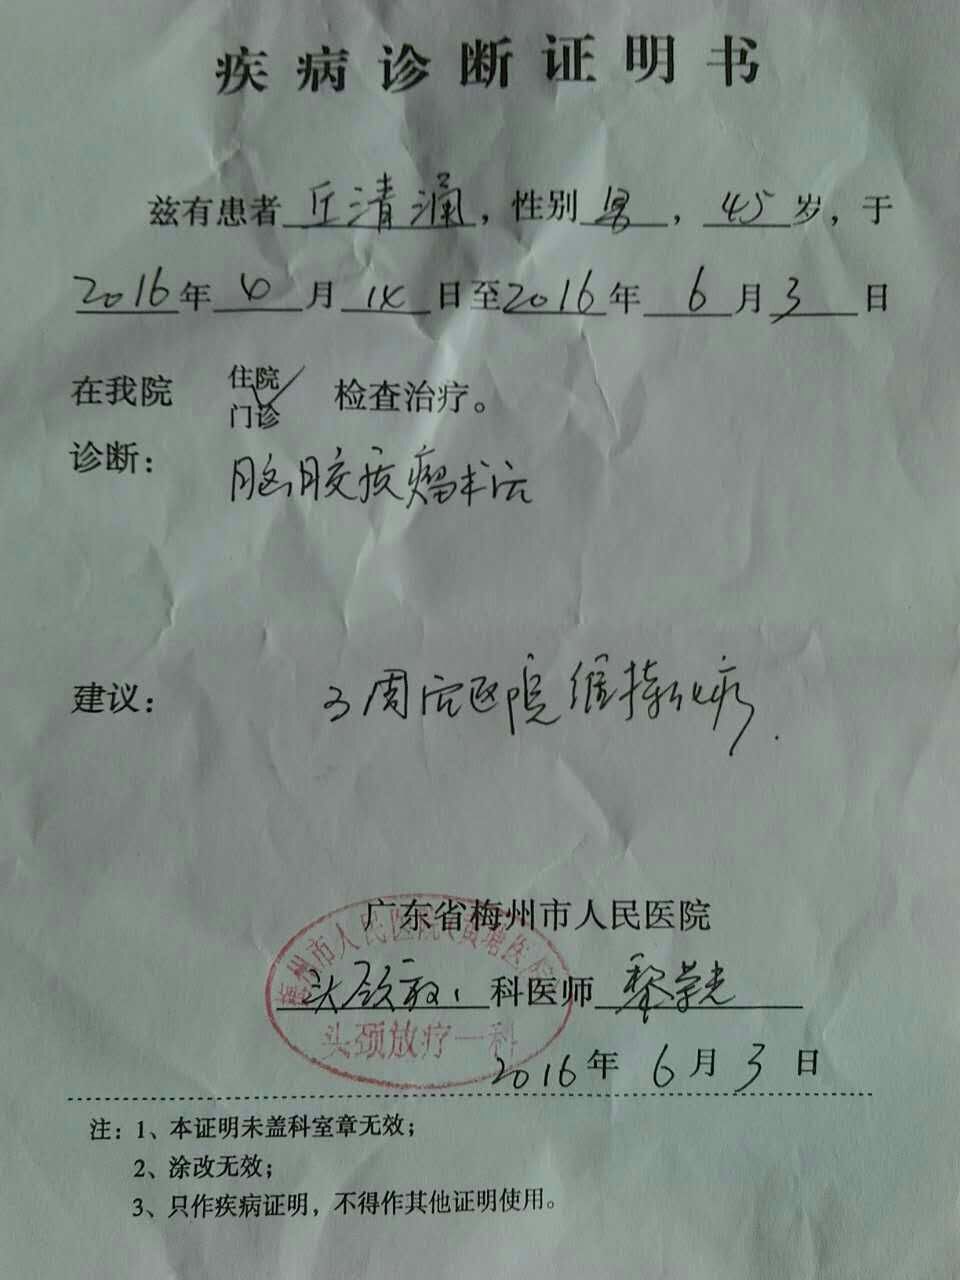 疾病诊断证明书
兹有患者丘清涌，性别男，45岁，于
2016年4月14日至2016年6月3日
在我院 住院 检查治疗。
门诊
诊断：
脑胶质瘤术后
建议：
3周后返院维持化疗.
广东省梅州市人民医院
梅州市人民医院(黄塘医院)
头颈放1科医师黎荣光
头颈放疗一科
2016年6月3日
注：1、本证明未盖科室章无效；
2、涂改无效；
3、只作疾病证明，不得作其他证明使用。